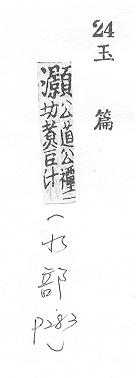 24
玉篇
灝 公道公禫二
切煮豆汁
(水部 p283)